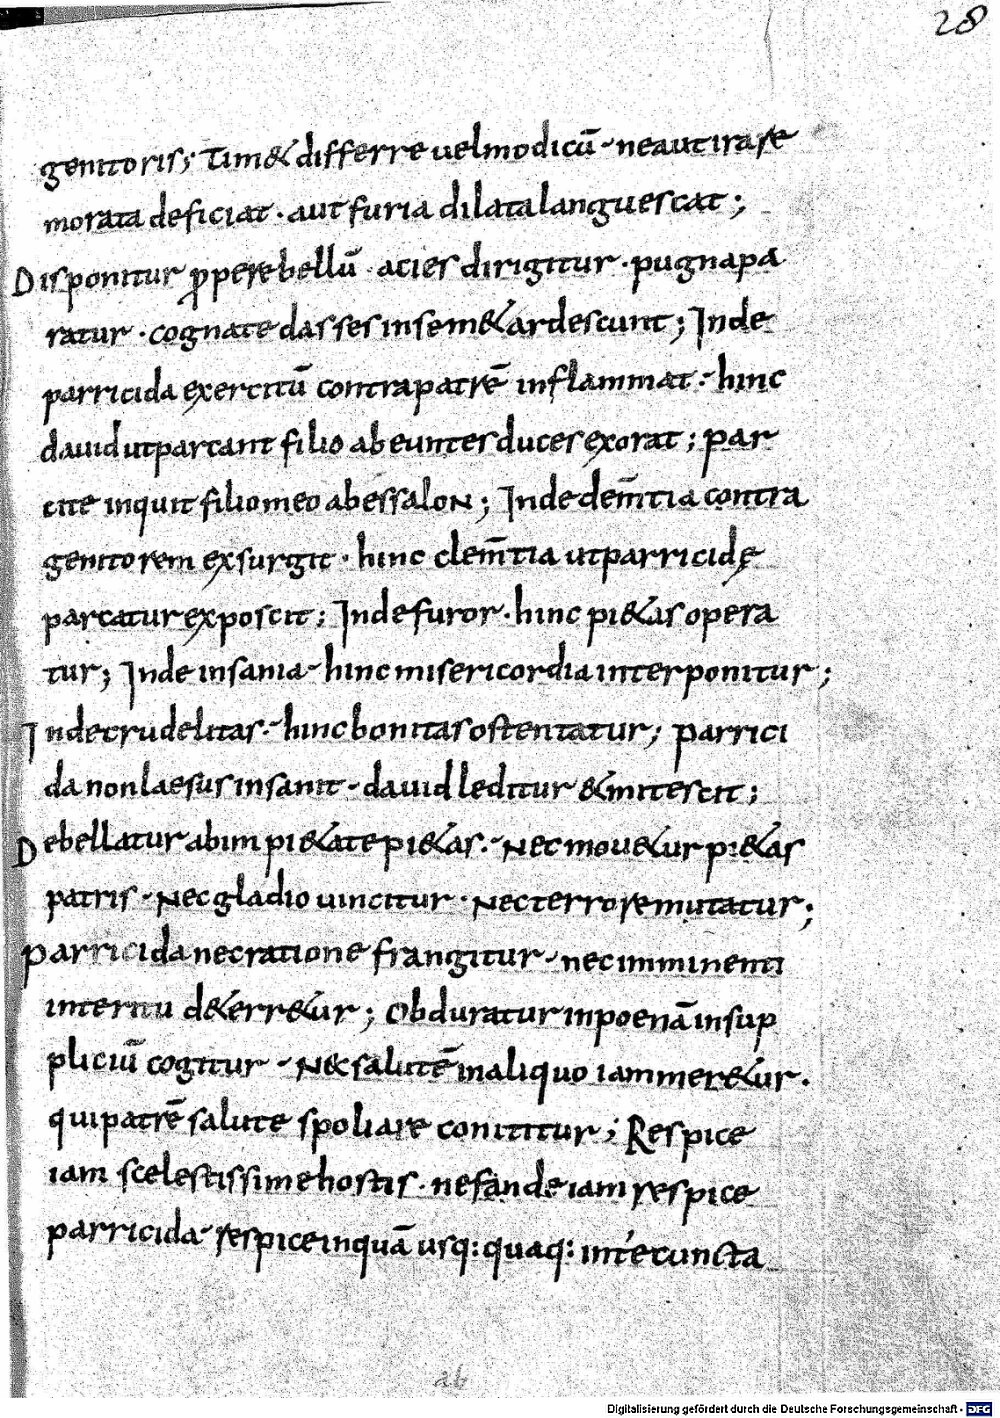 28
genitoris; Tim& differre uel modicū · ne aut ira re
morata deficiat · aut furia dilata languescat;
Disponitur ꝓpere bellū · acies dirigitur · pugna pa
ratur · cognate das ses in sem& ardescunt; Inde
parricida exercitū contra patrē inflammat · hinc
dauid ut parcant filio abeuntes duces exorat; par
cite inquit filio meo abessaloN; Inde dem̄tia contra
genitorem exsurgit · hinc clem̄tia ut parricidę
parcatur exposcit; Inde furor · hinc pi&as opera
tur; Inde insania · hinc misericordia interponitur;
Inde crudelitas · hinc bonitas ostentatur; parrici
da non laesus insanit · dauid leditur & mitescit;
Debellatur ab impi&ate pi&as · Nec mou&ur pi&as
patris · Nec gladio uincitur · Nec terrore mutatur;
Parricida nec ratione frangitur · nec imminenti
interitu d&err&ur; Obduratur in poenā in sup
pliciū cogitur · N&c salutē in aliquo iam mer&ur ·
qui patrē salute spoliare conititur; Respice
iam scelestissime hostis · nefande iam respice
parricida · respice inquā usq: quaq: in te cuncta
ab
Digitalisierung gefördert durch die Deutsche Forschungsgemeinschaft - DFG